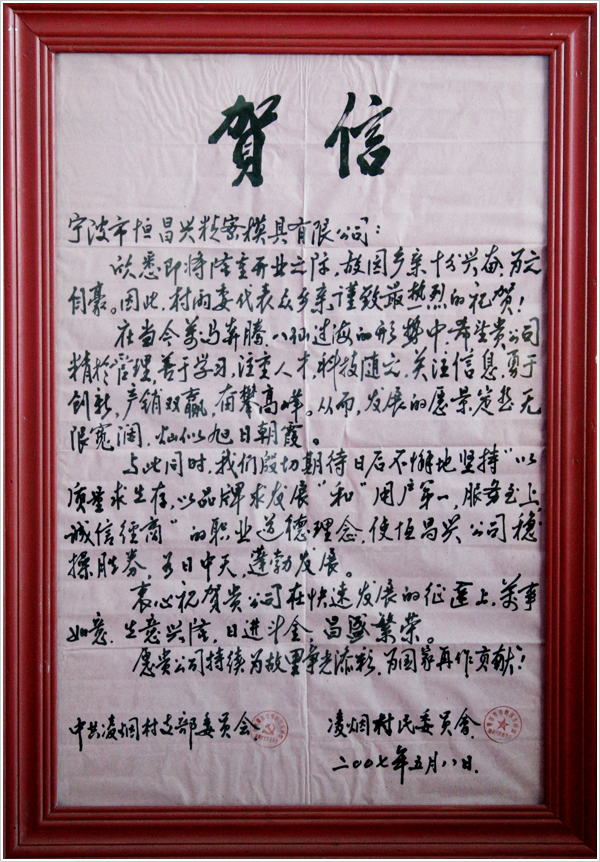 贺信
宁波市恒昌兴精密模具有限公司：
欣悉即将隆重开业之际，故园乡亲十分兴奋，为之
自豪。因此，村两委代表众乡亲谨致最热烈的祝贺！
在当今万马奔腾，八仙过海的形势中，希望贵公司
精于管理，善于学习，注重人才，科技随之，关注信息，勇于
创新，产销双赢，奋攀高峰。从而，发展的愿景定然无
限宽阔，灿似旭日朝霞。
与此同时，我们殷切期待日后不懈地坚持“以
质量求生存，以品牌求发展”和“用户第一，服务至上，
诚信经商”的职业道德理念，使恒昌兴公司稳
操胜券，如日中天，蓬勃发展。
衷心祝贺贵公司在快速发展的征途上，万事
如意，生意兴隆，日进斗金，昌盛繁荣。
愿贵公司持续为故里争光添彩，为国家再作贡献！
中共凌烟村支部委员会 凌烟村民委员会
二00七年五月八日.